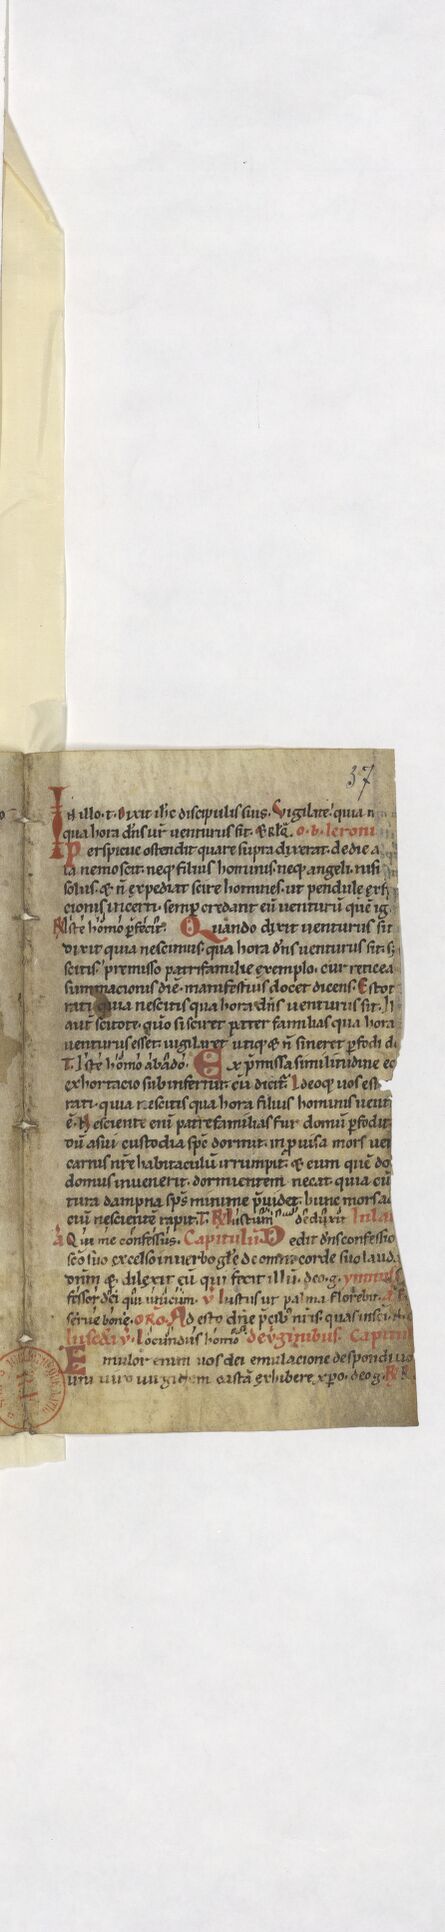 37
In illo. t. Dixit ihc discipulis suis. Vigilate. quia n
qua hora dns ur̄ uenturus sit. & rlq̄. O. b. Ieroni
Perspicue ostendit quare supra dixerat. de die a
la nemo scit. neq; filius hominis. neq; angeli. nisi
solus. & n̄ expediat scire homines. ut pendule exp
cionis incerti. semp credant eū uenturū quē ig
R Iste homo p̄fecit. Quando dixit uenturus sit
dixit quia nescimus. qua hora dns uenturus sit. s;
scitis. premisso patrisfamilie exemplo. cur reticea
summacionis diē. manifestius docet dicens. Estot
rati. quia nescitis qua hora dn̄s uenturus sit. Il
aut scitote. quō si sciret patter familias qua hora
uenturus esset. uigilaret utiq; & n̄ sineret p̄fodi d
T. Iste homo ab ādo. Ex p̄missa similitudine ec
exhortacio subinfertur. cū dicit. Ideoq; uos est
rati. quia nescitis qua hora filius hominis uent
ē. Nesciente enī patrefamilias fur domū p̄fodit
dū a sui custodia spc̄ dormit. inp̄uisa mors uei
carnis nr̄e habitaculū irrumpit. & eum quē do
domus inuenerit. dormientem necat. quia cū
tura dampna spc̄ minime p̄uidet. hunc mors ac
ciū nesciente rapit. T. R Iustum deduxit In lau
a Qui me confessus. Capitulū Dedit dns confessio
scō suo excelso in uerbo gle de omni corde suo laud
dnm & dilexit eū qui fecit illū. deo. g. ymnus
fessor dei qui unicum. V Iustus ut palma florebit. A
serue bone. ORO. Adesto dne p̄cib; nr̄is. quas in sci
lus ed̄i v. Iocundus homo de v̄ginibus. Capitu
Emulor enim uos dei emulacione despondi uo
uni uiro uirginem castā exhibere xpo. deo g. R